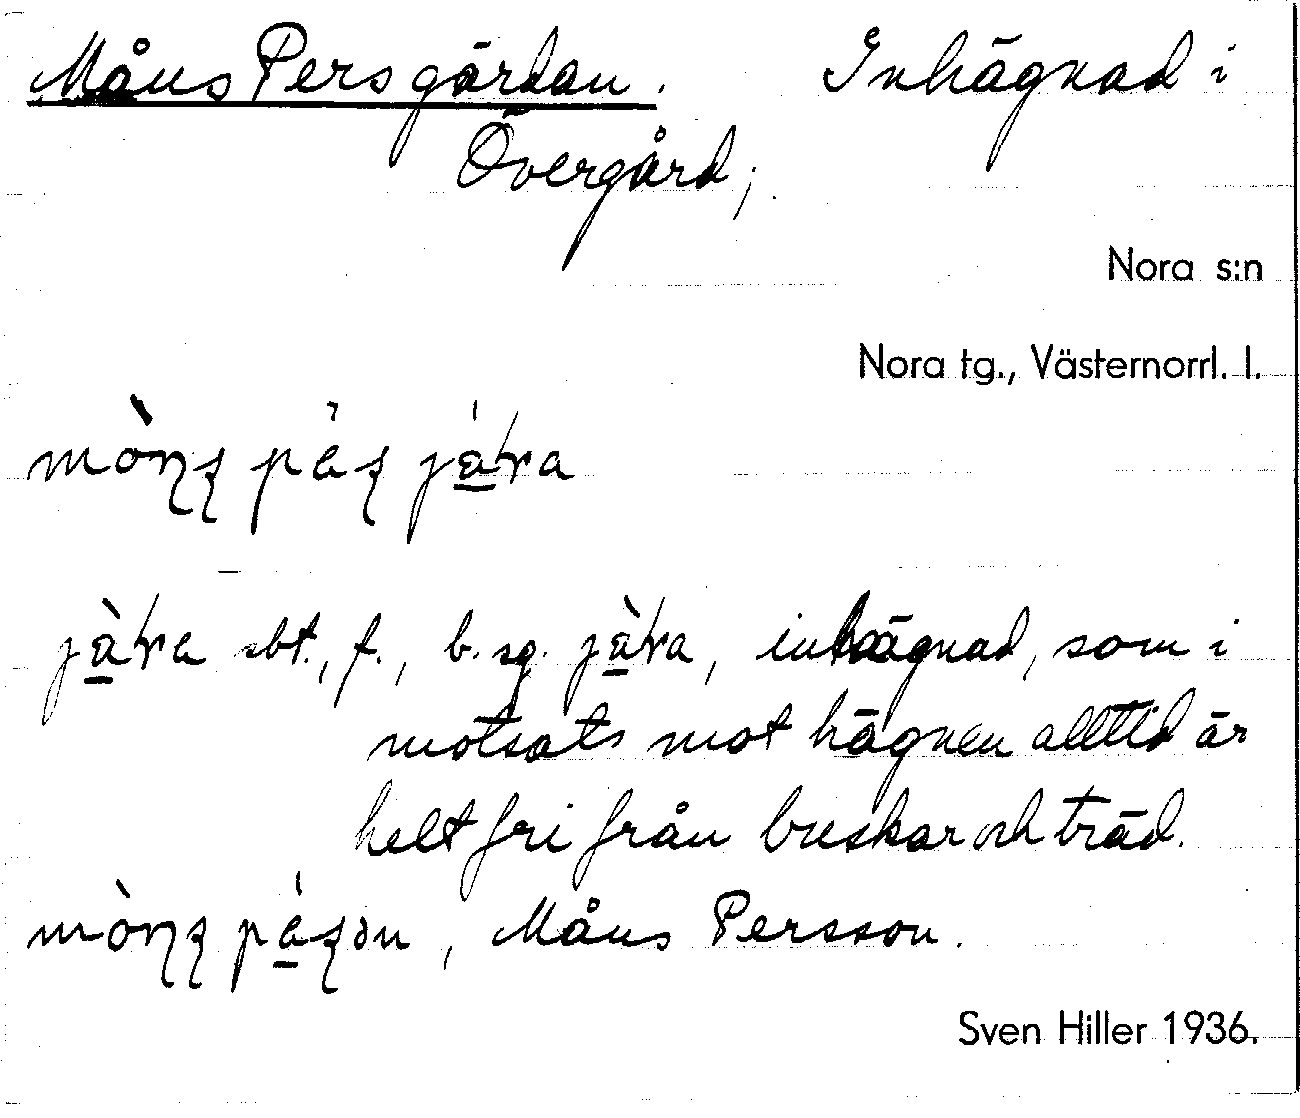 Måns Persgärdan. Inhägnad i
Övergård;
Nora s:n
Nora tg., Västernorrl. l.
sbt., f., b. sg. , inhägnad, som i
motsats mot hägnen alltid är
helt fri från buskar och träd.
, Måns Persson.
Sven Hiller 1936.